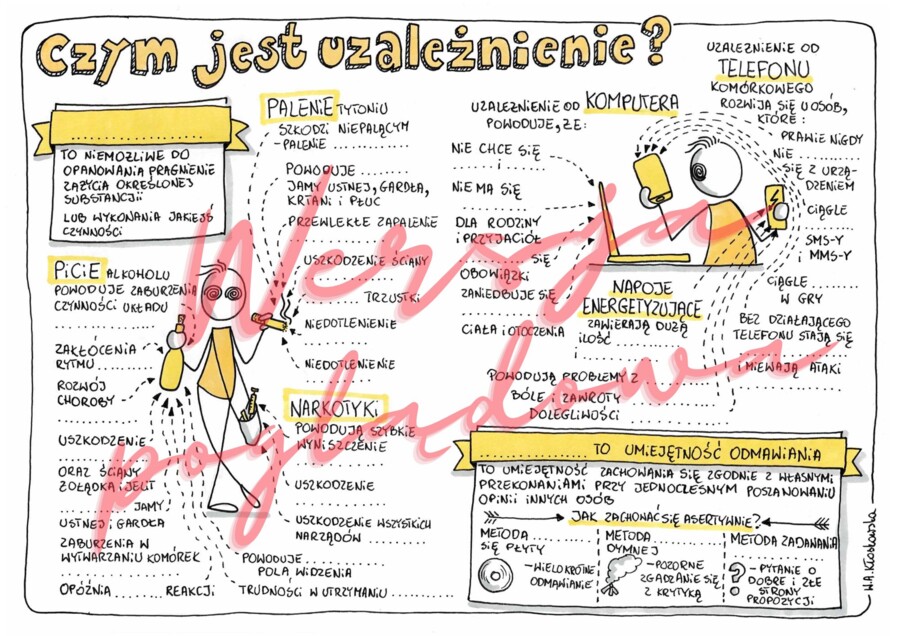 Czym jest uzależnienie?
....................
TO NIEMOŻLIWE DO
OPANOWANIA PRAGNIENIE
ZAŻYCIA OKREŚLONEJ
SUBSTANCJI
LUB WYKONANIA JAKIEJŚ
CZYNNOŚCI
PICIE ALKOHOLU
POWODUJE ZABURZENIA
CZYNNOŚCI UKŁADU
....................
ZAKŁÓCENIA
RYTMU ..........
ROZWÓJ
CHOROBY
....................
USZKODZENIE
....................
ORAZ ŚCIANY
ŻOŁĄDKA I JELIT
.......... JAMY
USTNEJ I GARDŁA
ZABURZENIA W
WYTWARZANIU KOMÓREK
....................
OPÓŹNIA .......... REAKCJI
PALENIE TYTONIU
SZKODZI NIEPALĄCYM
- PALENIE ..........
POWODUJE ..........
JAMY USTNEJ, GARDŁA,
KRTANI I PŁUC
PRZEWLEKŁE ZAPALENIE
....................
USZKODZENIE ŚCIANY
....................
.......... TRZUSTKI
NIEDOTLENIENIE
....................
NIEDOTLENIENIE
....................
NARKOTYKI
POWODUJĄ SZYBKIE
WYNISZCZENIE
....................
USZKODZENIE
....................
USZKODZENIE WSZYSTKICH
NARZĄDÓW ..........
POWODUJE ..........
POLA WIDZENIA
TRUDNOŚCI W UTRZYMANIU ..........
UZALEŻNIENIE OD KOMPUTERA
POWODUJE, ŻE:
NIE CHCE SIĘ
.......... I ..........
NIE MA SIĘ
....................
DLA RODZINY
I PRZYJACIÓŁ
.......... SIĘ
OBOWIĄZKI
ZANIEDBUJE SIĘ
....................
CIAŁA I OTOCZENIA
UZALEŻNIENIE OD
TELEFONU
KOMÓRKOWEGO
ROZWIJA SIĘ U OSÓB,
KTÓRE:
PRAWIE NIGDY
NIE ..........
SIĘ Z URZĄ-
DZENIEM
CIĄGLE
..........
SMS-Y
I MMS-Y
CIĄGLE ..........
W GRY
BEZ DZIAŁAJĄCEGO
TELEFONU STAJĄ SIĘ
....................
I MIEWAJĄ ATAKI
....................
NAPOJE
ENERGETYZUJĄCE
ZAWIERAJĄ DUŻĄ
ILOŚĆ ..........
POWODUJĄ PROBLEMY Z
....................
BÓLE I ZAWROTY ..........
DOLEGLIWOŚCI ..........
.................... TO UMIEJĘTNOŚĆ ODMAWIANIA
TO UMIEJĘTNOŚĆ ZACHOWANIA SIĘ ZGODNIE Z WŁASNYMI
PRZEKONANIAMI PRZY JEDNOCZESNYM POSZANOWANIU
OPINII INNYCH OSÓB
JAK ZACHOWAĆ SIĘ ASERTYWNIE?
METODA ..........
SIĘ PŁYTY
- WIELOKROTNE
ODMAWIANIE
METODA ..........
DYMNEJ
- POZORNE
ZGADZANIE SIĘ
Z KRYTYKĄ
METODA ZADAWANIA
....................
- PYTANIE O
DOBRE I ZŁE
STRONY
PROPOZYCJI
H.A. Kłosłowska
Wersja
poglądowa